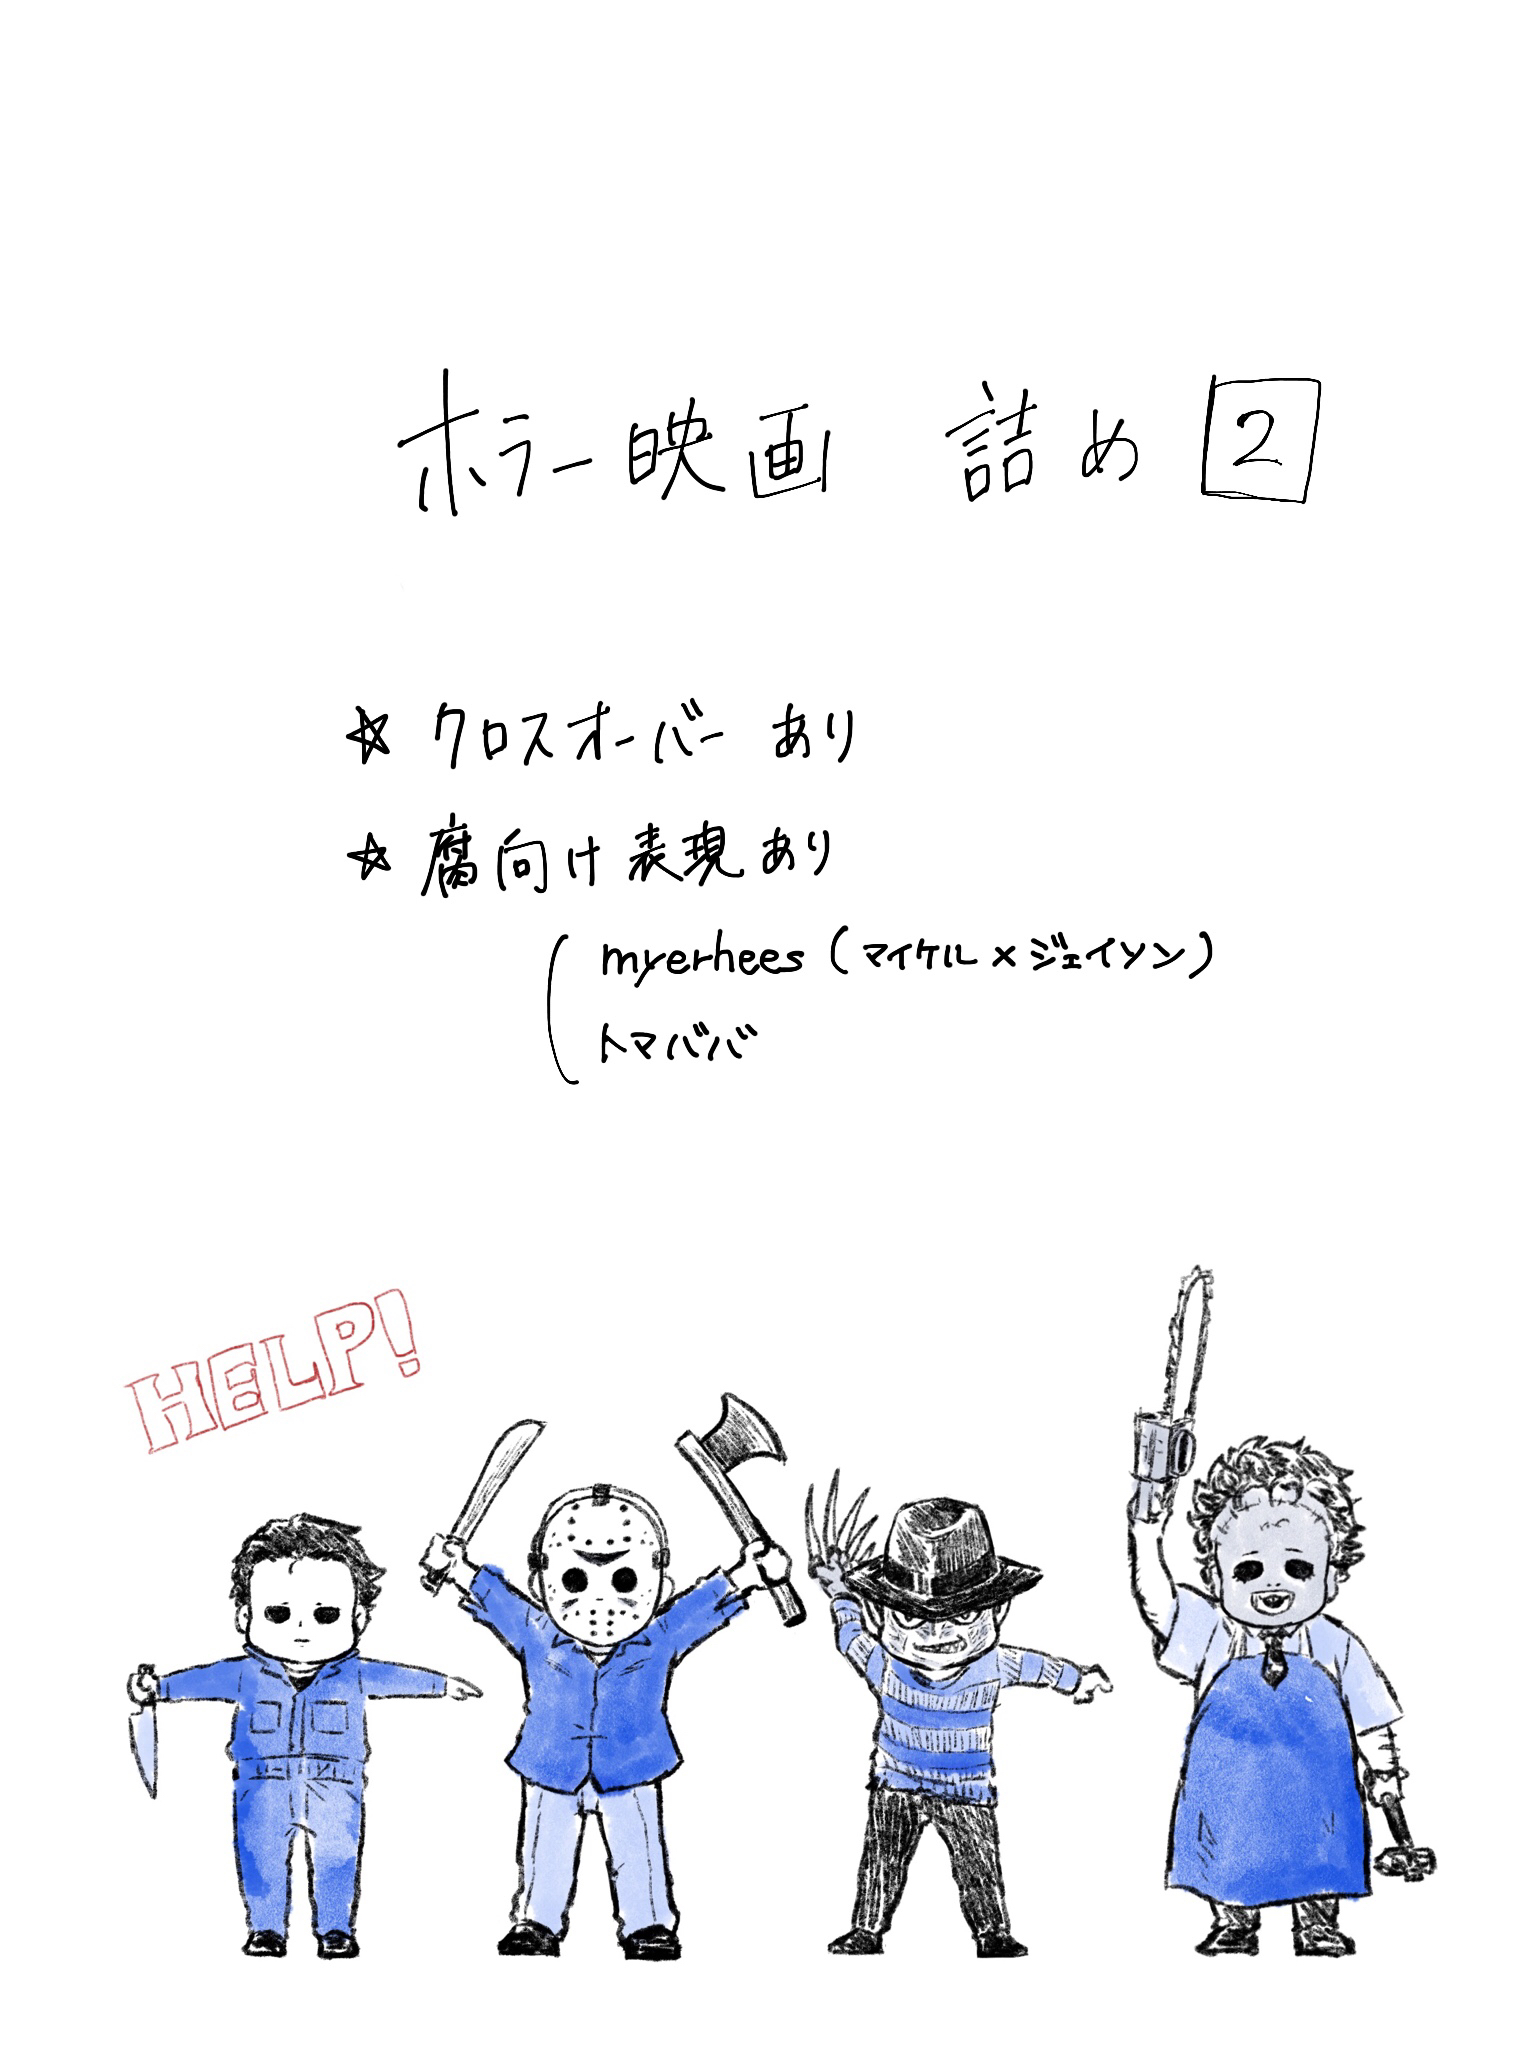 ホラー映画 詰め 2
☆ クロスオーバー あり
☆ 腐向け表現あり
myerhees (マイケル×ジェイソン)
トマババ
HELP!